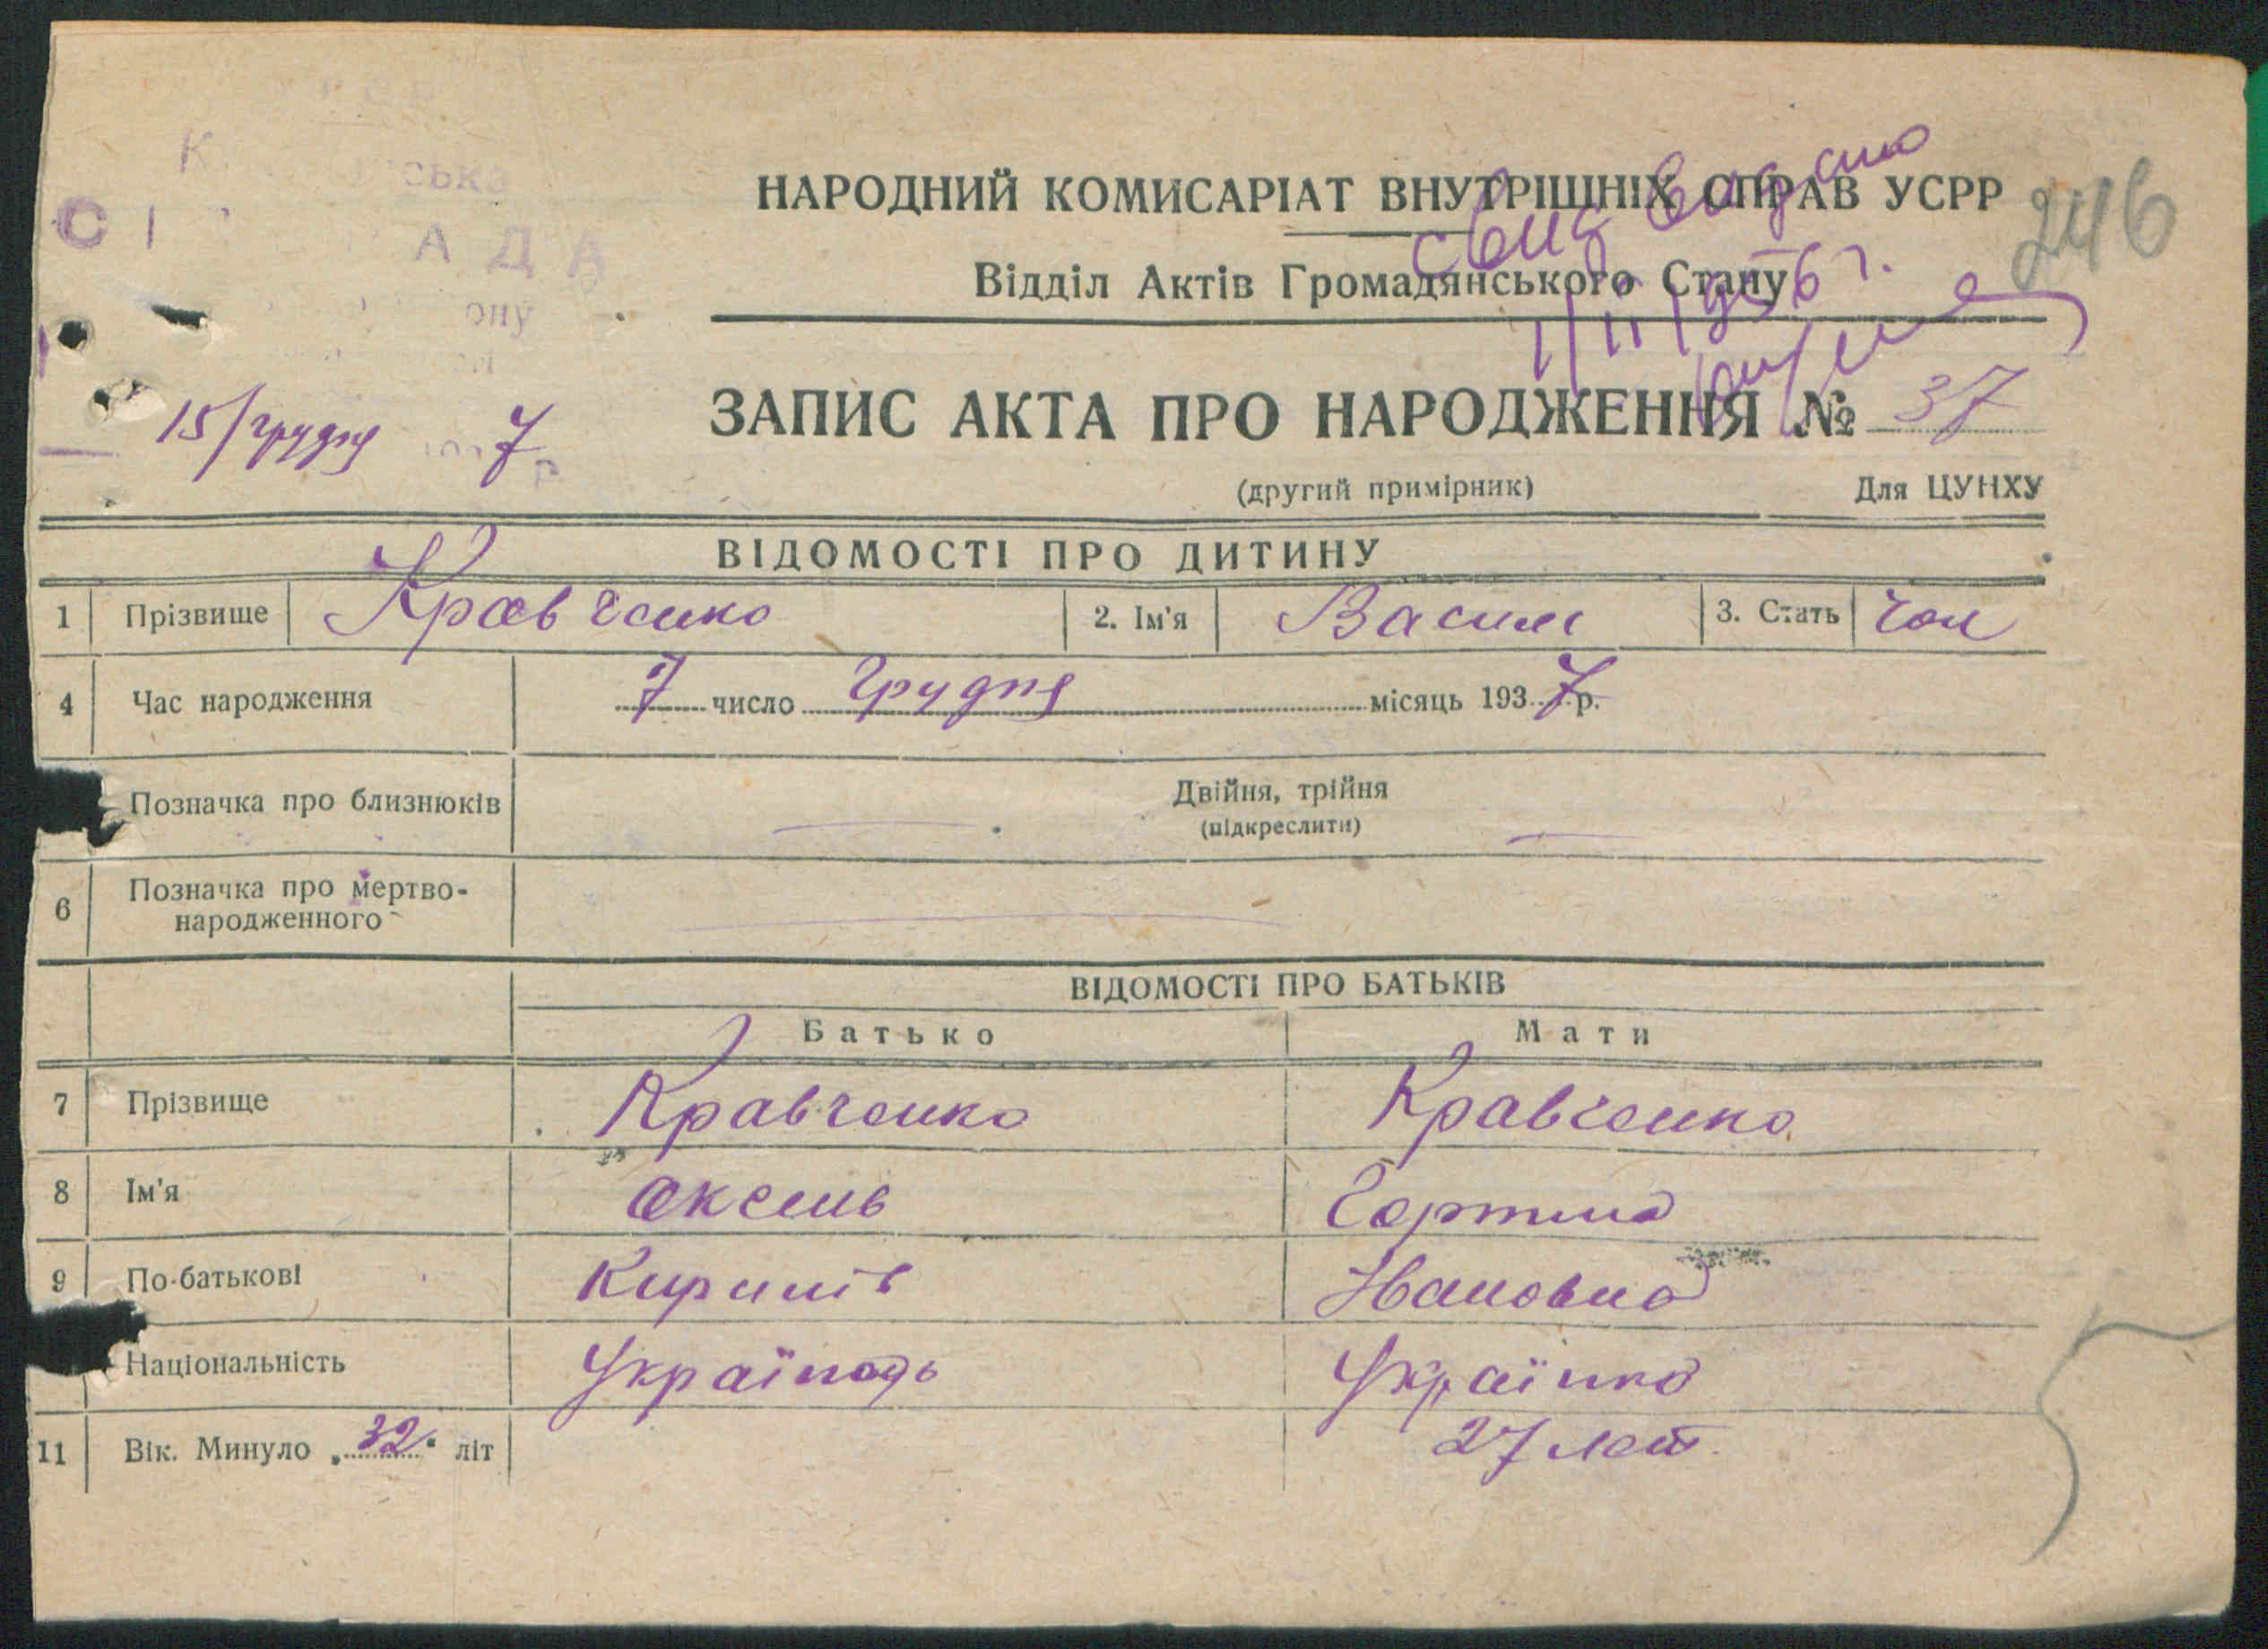 ська
АДА
ону
НАРОДНИЙ КОМИСАРІАТ ВНУТРІШНІХ СПРАВ УСРР
246
Відділ Актів Громадянського Стану
1/II 1956 г.
15/грудня 7 р.
ЗАПИС АКТА ПРО НАРОДЖЕННЯ № 37
(другий примірник) Для ЦУНХУ
ВІДОМОСТІ ПРО ДИТИНУ
1 Прізвище Кравченко 2. Ім'я Васил 3. Стать чол
4 Час народження 7 число Грудня місяць 1937 р.
Позначка про близнюків Двійня, трійня
(підкреслити)
6 Позначка про мертво-
народженного
ВІДОМОСТІ ПРО БАТЬКІВ
Батько Мати
7 Прізвище Кравченко Кравченко
8 Ім'я
9 По-батькові Кирилів Ивановна
Національність Українець Українка
11 Вік. Минуло „32" літ 27 лет